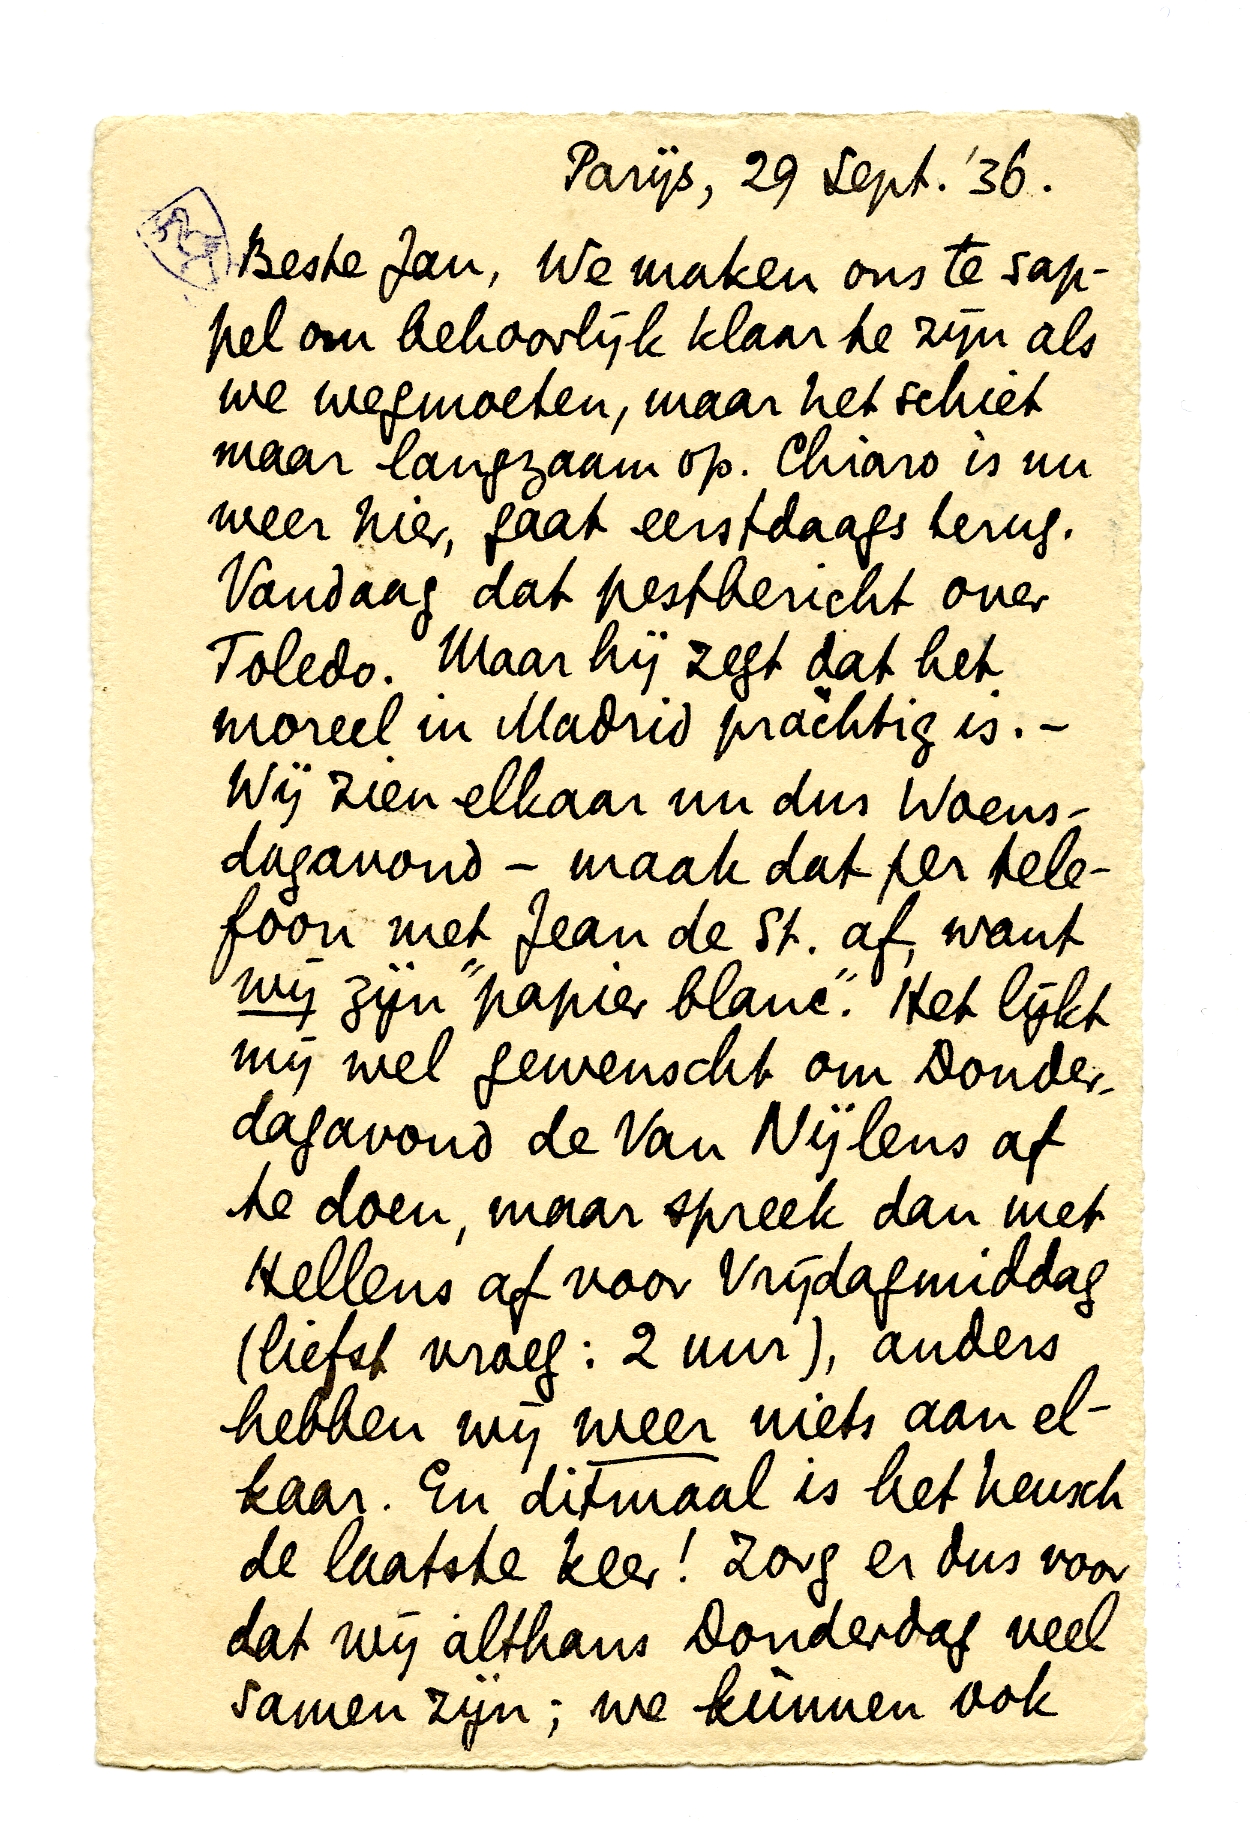 Parijs, 29 Sept. '36.
Beste Jan, We maken ons te sap-
pel om behoorlijk klaar te zijn als
we wegmoeten, maar het schiet
maar langzaam op. Chiaro is nu
weer hier, gaat eerstdaags terug.
Vandaag dat pestbericht over
Toledo. Maar hij zegt dat het
moreel in Madrid prachtig is. –
Wij zien elkaar nu dus Woens-
dagavond – maak dat per tele-
foon met Jean de St. af, want
wij zijn "papier blanc". Het lijkt
mij wel gewenscht om Donder-
dagavond de Van Nijlens af
te doen, maar spreek dan met
Hellens af voor Vrijdagmiddag
(liefst vroeg: 2 uur), anders
hebben wij weer niets aan el-
kaar. En ditmaal is het heusch
de laatste keer! Zorg er dus voor
dat wij althans Donderdag veel
samen zijn; we kunnen ook